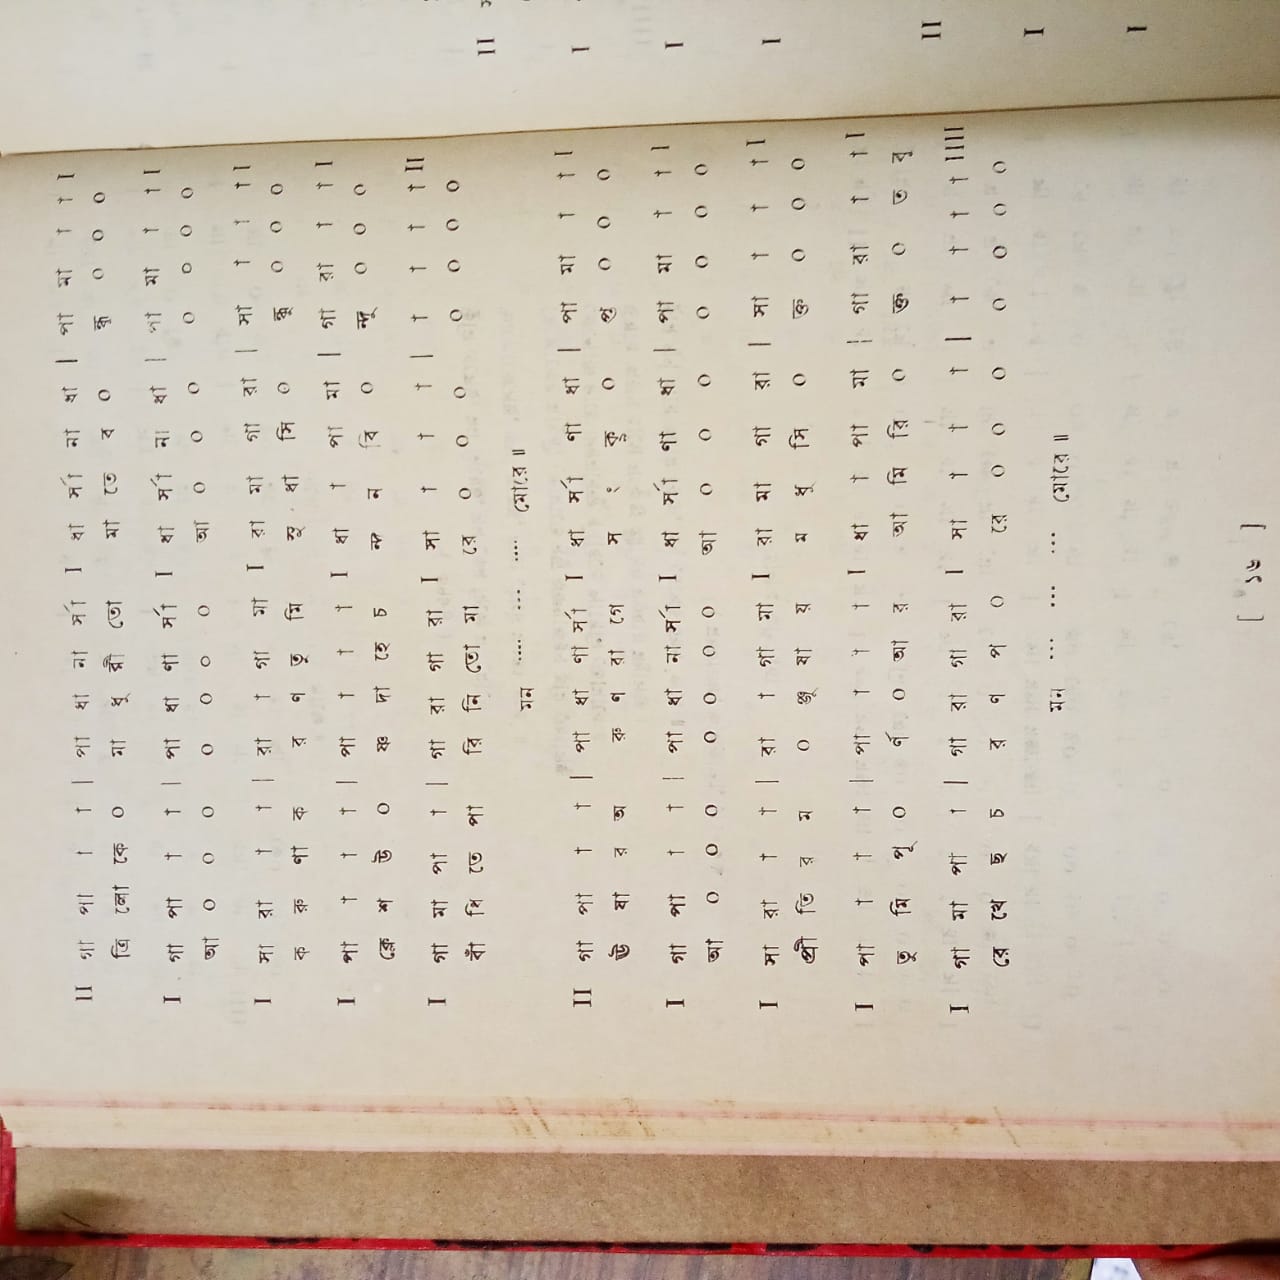 II গা পা া া | পা ধা না র্সা I ধা র্সা না ধা | পা মা া া I
ত্রি লো কে ০ মা ধু রী তো মা তে ব ০ ন্ধু ০ ০ ০
I গা পা া া | পা ধা ণা র্সা I ধা র্সা না ধা | পা মা া া I
আ ০ ০ ০ ০ ০ ০ ০ আ ০ ০ ০ ০ ০ ০ ০
I সা রা া া | রা া গা মা I রা মা গা রা | সা া া I
ক রু ণা ক র ণ তু মি সু ধা সি ০ ন্ধু ০ ০ ০
I পা া া া | পা া া া I ধা া পা মা | গা রা া া I
ক্লে শ উ ০ ষ্ণ দা হে চ ন্দ ন বি ০ ন্দু ০ ০ ০
I গা মা পা া | গা রা গা রা I সা া া া | া া া া II
বাঁ ধি তে পা রি নি তো মা রে ০ ০ ০ ০ ০ ০ ০
মন ..... .... .... মোরে॥
II গা পা া া | পা ধা ণা র্সা I ধা র্সা ণা ধা | পা মা া া I
ঊ ষা র অ রু ণ রা গে স ং কু ০ প্ত ০ ০ ০
I গা পা া া | পা ধা না র্সা I ধা র্সা ণা ধা | পা মা া া I
আ ০ ০ ০ ০ ০ ০ ০ আ ০ ০ ০ ০ ০ ০ ০
I সা রা া া | রা া গা মা I রা মা গা রা | সা া া া I
প্রী তি র ম ০ ঞ্জু ষা য় ম ধু সি ০ ক্ত ০ ০ ০
I পা া া া | পা া া া I ধা া পা মা | গা রা া া I
তু মি পূ ০ র্ণ ০ আ র আ মি রি ০ ক্ত ০ ত বু
I গা মা পা া | গা রা গা রা I সা া া া | া া া া IIII
রে খে ছ চ র ণ প ০ রে ০ ০ ০ ০ ০ ০ ০
মন ... ... ... মোরে॥
[ ১৬ ]